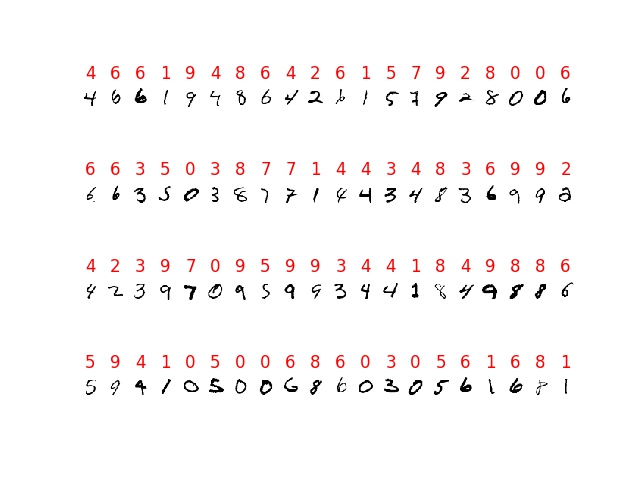 4 6 6 1 9 4 8 6 4 2 6 1 5 7 9 2 8 0 0 6
4 6 6 1 9 4 8 6 4 2 6 1 5 7 9 2 8 0 0 6
6 6 3 5 0 3 8 7 7 1 4 4 3 4 8 3 6 9 9 2
6 6 3 5 0 3 8 7 7 1 4 4 3 4 8 3 6 9 9 2
4 2 3 9 7 0 9 5 9 9 3 4 4 1 8 4 9 8 8 6
4 2 3 9 7 0 9 5 9 9 3 4 4 1 8 4 9 8 8 6
5 9 4 1 0 5 0 0 6 8 6 0 3 0 5 6 1 6 8 1
5 9 4 1 0 5 0 0 6 8 6 0 3 0 5 6 1 6 8 1